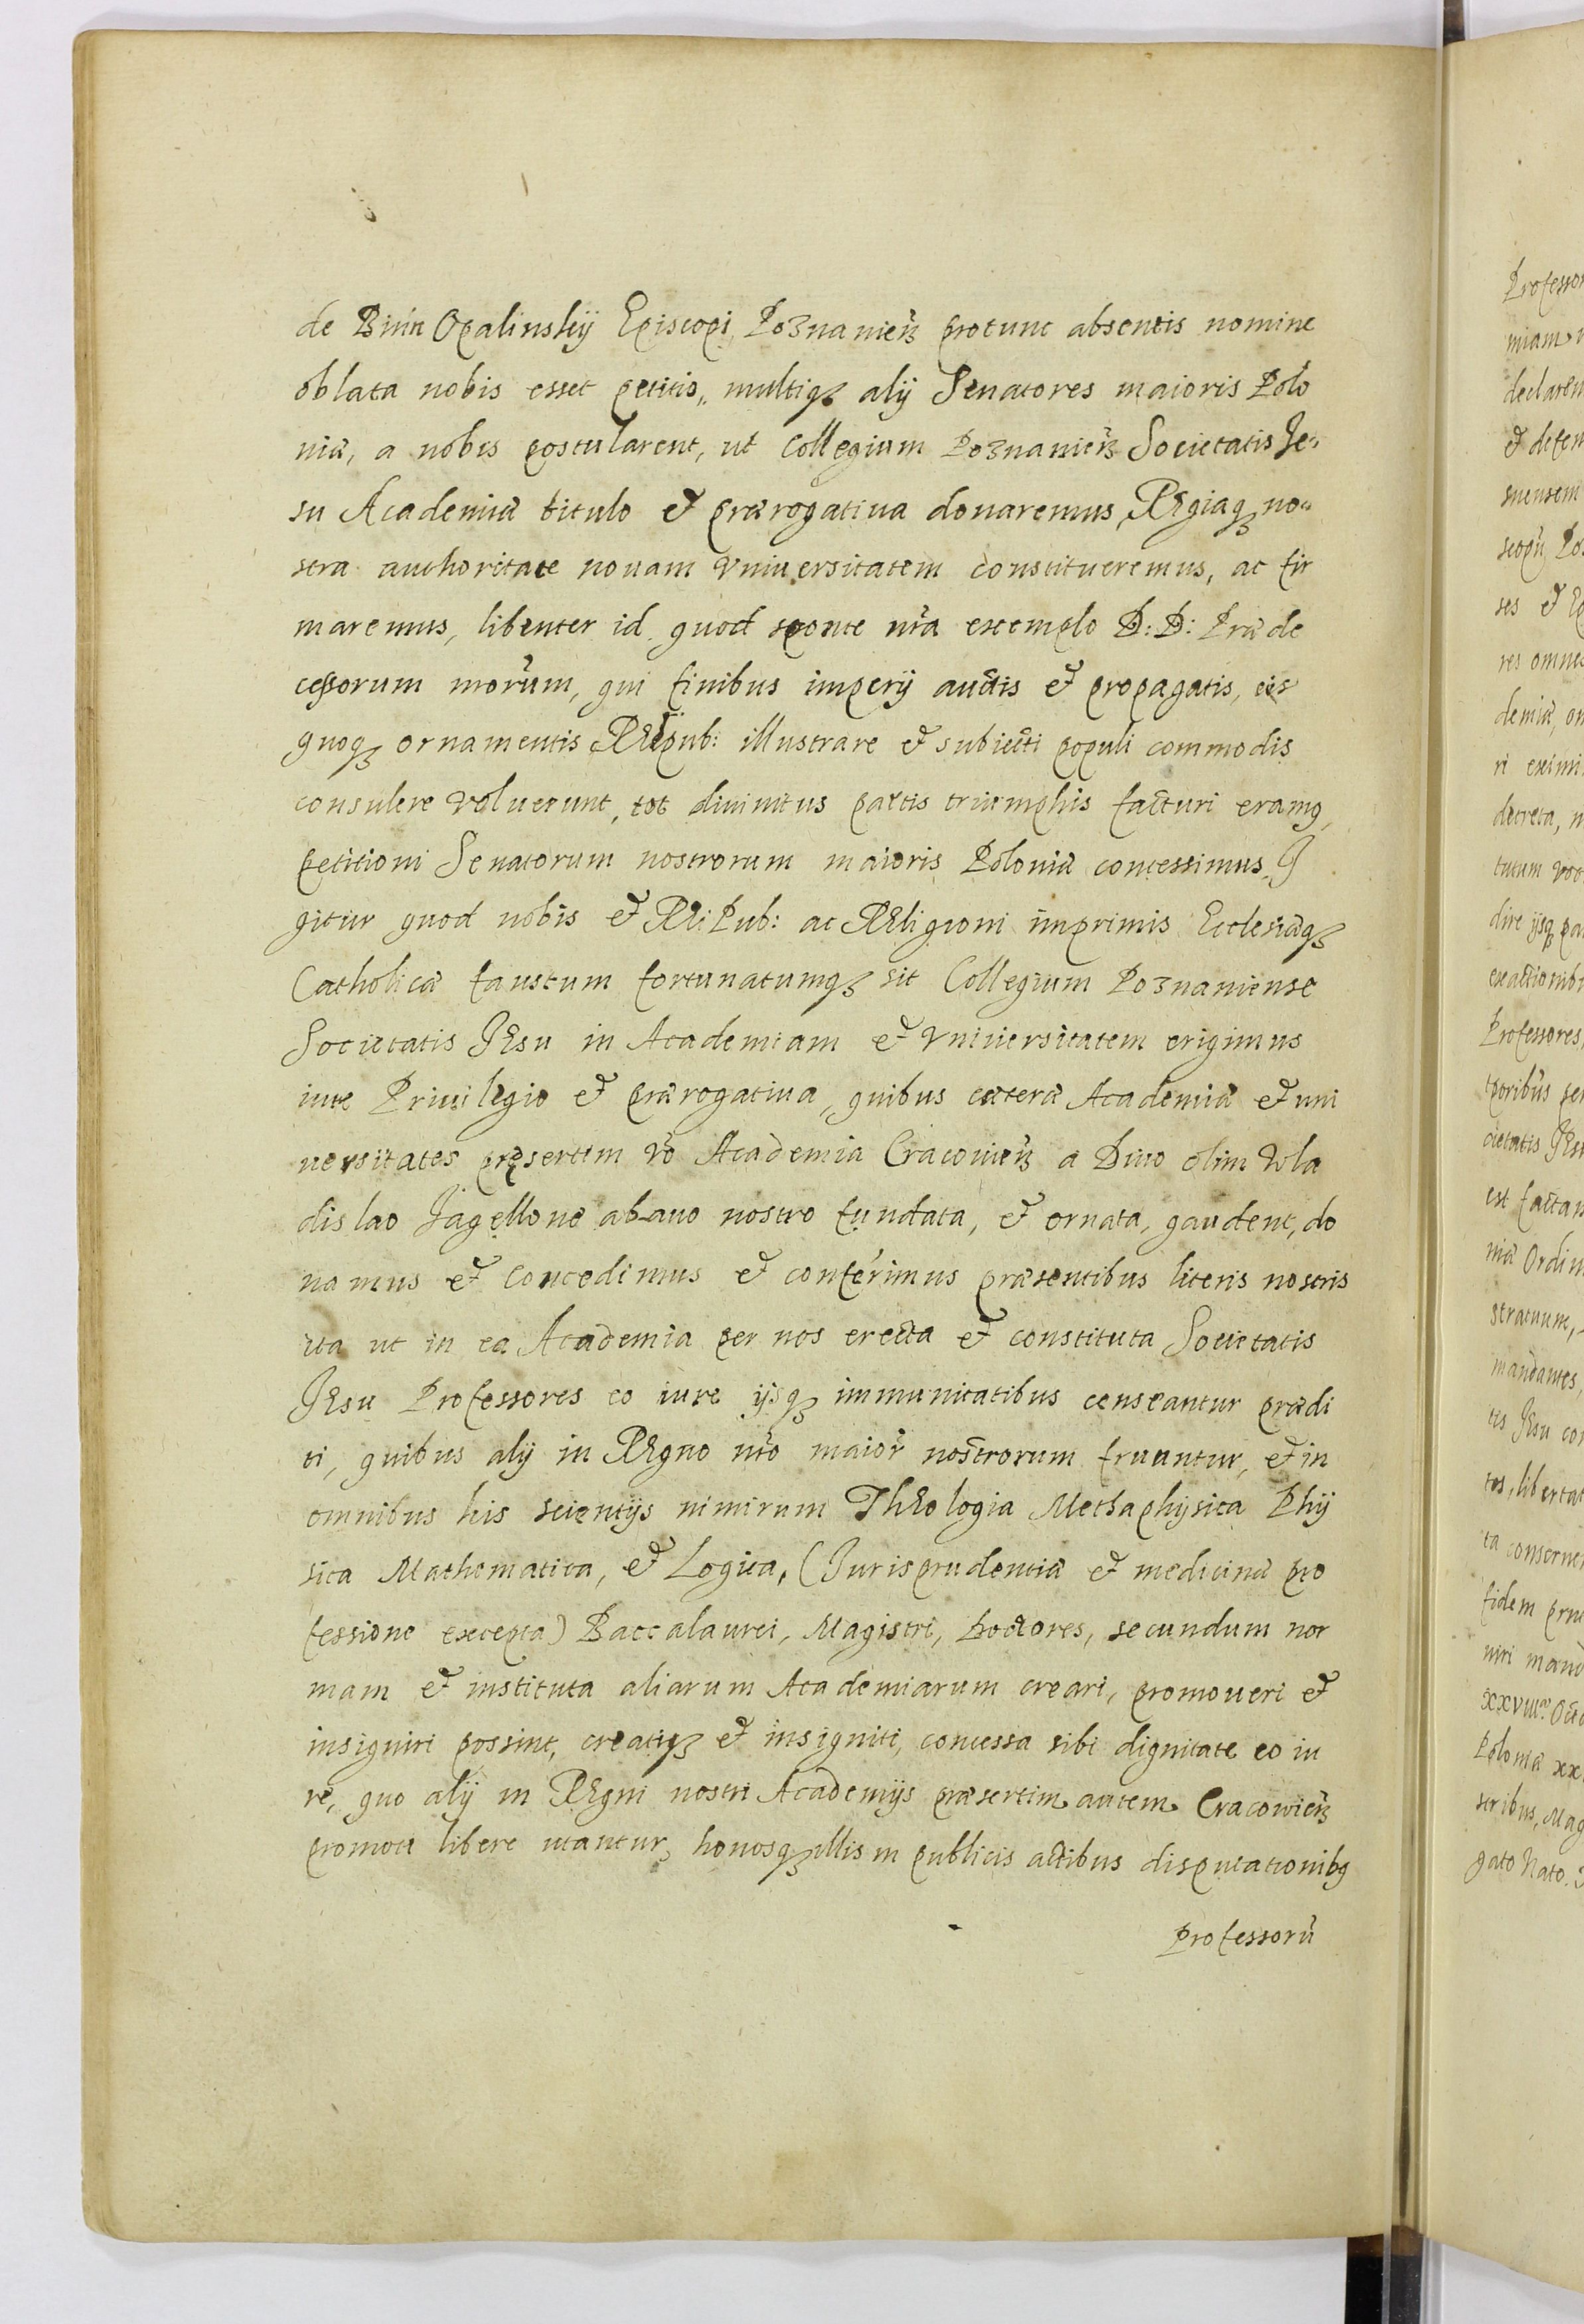 de Bnin Opalinskij Episcopi Poznanień protunc absentis nomine
oblata nobis esset petitio, multiq; alij Senatores maioris Polo
niæ, a nobis postularent, ut Collegium Poznanień Societatis Je-
su Academiæ titulo et prærogatiua donaremus, Regiaq; no-
stra authoritate nouam Vniuersitatem constitueremus, ac fir
maremus, libenter id quod sponte nr̃a exemplo D: D: Præde
cessorum nrorũm, qui finibus imperij auctis et propagatis, eis
quoq; ornamentis Reipub: illustrare et subiecti populi commodis
consulere voluerunt, tot diuinitus partis triumphis facturi eramq,
petitioni Senatorum nostrorum maioris Poloniæ concessimus. I
gitur quod nobis et Rei Pub: ac Religioni imprimis Ecclesiæq;
Catholicæ faustum fortunatumq; sit Collegium Poznaniense
Societatis Jesu in Academiam et Vniuersitatem erigimus
iure Priuilegio et prærogatiua, quibus cæteræ Academiæ et uni
uersitates præsertim vo Academia Cracouień a Diuo olim Vla
dislao Jagellone abauo nostro fundata, et ornata, gaudent, do
namus et Concedimus et conferimus præsentibus literis nostris
ita ut in ea Academia per nos erecta et constituta Societatis
Jesu Professores eo iure ijsq; immunitatibus censeantur prædi
ti, quibus alij in Regno nr̃o maior̃ nostrorum fruuntur, et in
omnibus his scientijs nimirum Theologia Methaphysica Phij
sica Mathematica, et Logica, (Jurisprudentiæ et medicinæ pro
fessione excepta) Baccalaurei, Magistri, Doctores, secundum nor
mam et instituta aliarum Academiarum creari, promoueri et
insigniri possint, creatiq; et insigniti, concessa sibi dignitate eo iu
re, quo alij in Regni nostri Academijs præsertim autem Cracowień
promoti libere utantur, honosq; illis in publicis actibus disputationibq
Professorũ
Professor
miam
declarem
et defen
suensem
ses et
res omnes
demiæ, om
ri eximi
decreta,
tutum
dire ijsq;
exactionib
Professores,
cietatis Jesu
est factam
niæ Ordin
mandantes,
tis Jesu con
tes, libertat
ta conseru
fidem
niri mand
Poloniæ xx
stribus, Mag
gato Nato.